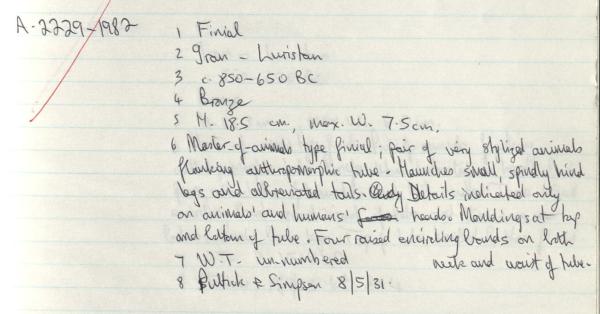 A.2229-1982
1 Finial
2 Iran - Luristan
3 c. 850-650 BC
4 Bronze
5 H. 18.5 cm, max. W. 7.5 cm.
6 Master-of-animals type finial; pair of very stylized animals
flanking anthropomorphic tube. Haunches small, spindly hind
legs and abbreviated tails. Details indicated only
on animals' and humans' heads. Mouldings at top
and bottom of tube. Four raised encircling bands on both
neck and waist of tube.
7 W.T. unnumbered
8 & Simpson 8/5/31.